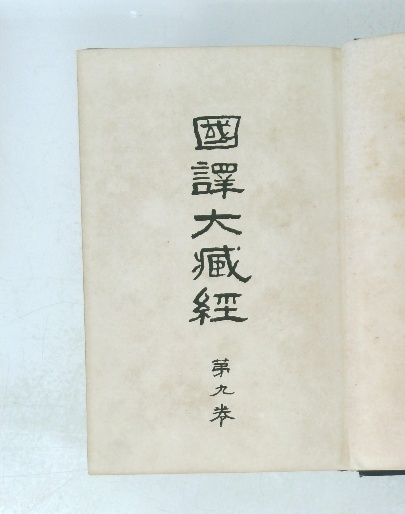 國譯大藏經
第九卷